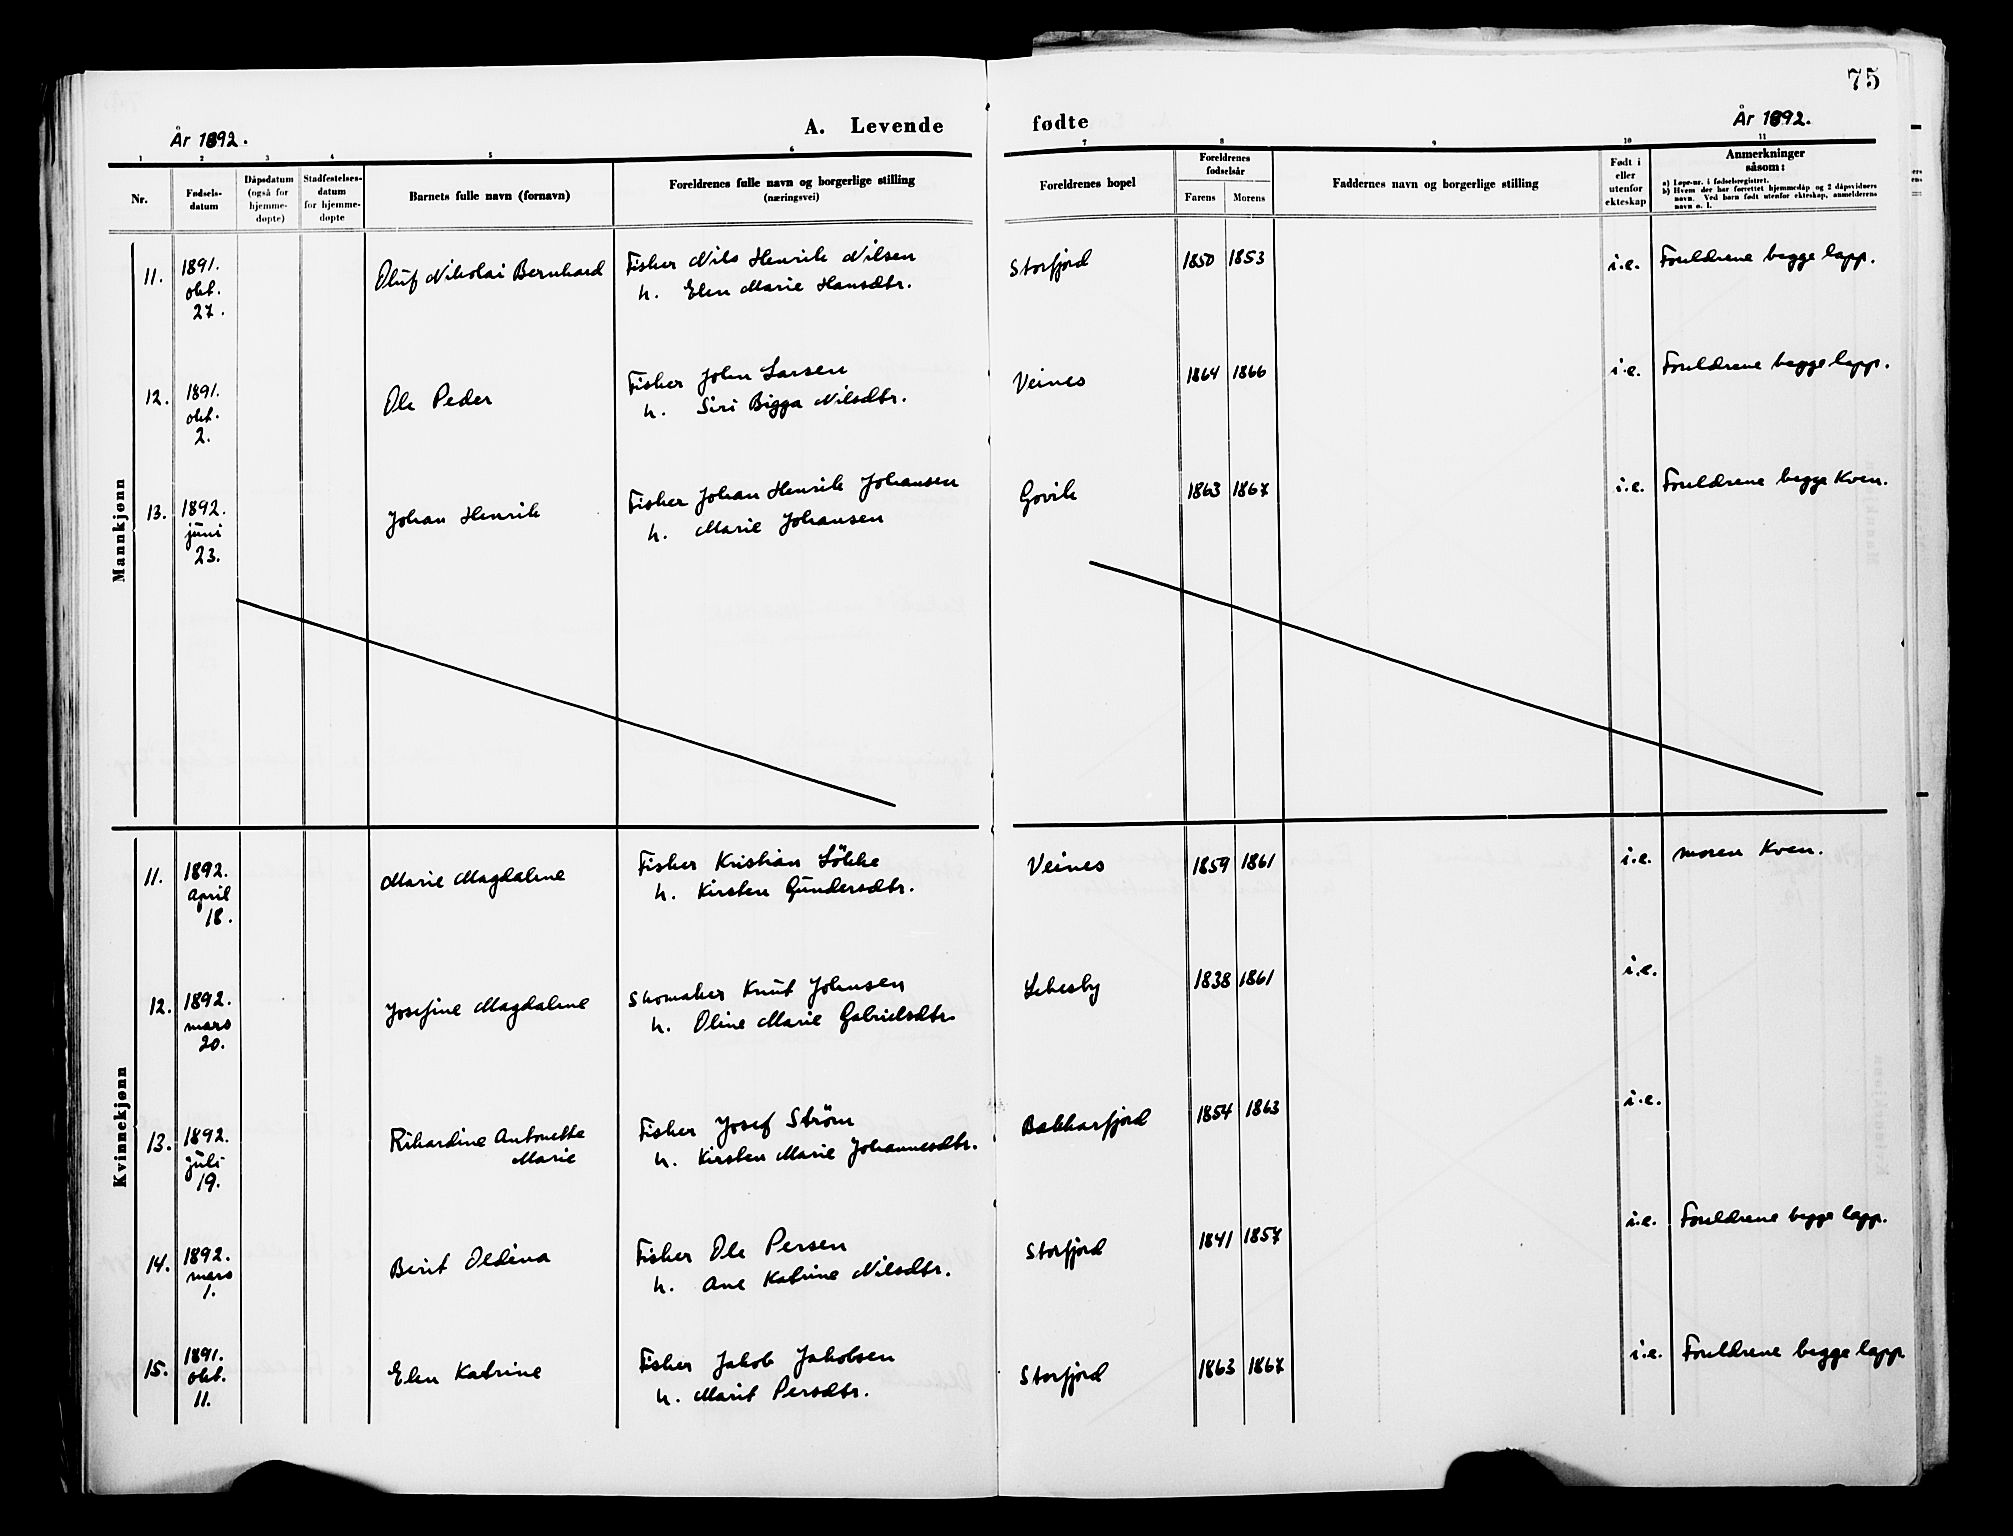 75
År 1892.
A. Levende fødte
År 1892.
1 2 3 4 5 6 7 8 9 10 11
Nr.
Fødsels-
datum
Dåpsdatum
(også for
hjemme-
døpte)
Stadfestelses-
datum
for hjemme-
døpte
Barnets fulle navn (fornavn)
Foreldrenes fulle navn og borgerlige stilling
(næringsvei)
Foreldrenes bopel
Foreldrenes
fødselsår
Farens Morens
Faddernes navn og borgerlige stilling
Født i
eller
utenfor
ekteskap
Anmerkninger
såsom:
a) Løpe-nr. i fødselsregistret.
b) Hvem der har forrettet hjemmedåp og 2 dåpsvidners
navn. Ved barn født utenfor ekteskap, anmelderens
navn o. l.
Mannkjønn
11. 1891. Oluf Nikolai Bernhard Fisker Nils Henrik Nilsen Storfjord 1850 1853 i.e. Foreldrene begge lapp.
okt. h. Elen Marie Hansdtr.
27.
12. 1891. Ole Peder Fisker John Larsen Veines 1864 1866 i.e. Foreldrene begge lapp.
okt. h. Siri Bigga Nilsdtr.
2.
13. 1892. Johan Henrik Fisker Johan Henrik Johansen Govik 1863 1867 i.e. Foreldrene begge Kven.
juni h. Marie Johansen
23.
Kvinnekjønn
11. 1892. Marie Magdalene Fisker Kristian Løkke Veines 1859 1861 i.e. moren Kven.
April h. Kirsten Gundersdtr.
18.
12. 1892. Josefine Magdalene Skomaker Knut Johnsen Lebesby 1838 1861 i.e.
mars h. Oline Marie Gabrielsdtr.
20.
13. 1892. Rikardine Antonette Fisker Josef Strøm Bakkarfjord 1854 1863 i.e.
juli Marie h. Kirsten Marie Johannesdtr.
19.
14. 1892. Berit Oldina Fisker Ole Persen Storfjord 1841 1857 i.e. Foreldrene begge lapp.
mars h. Ane Katrine Nilsdtr.
1.
15. 1891. Elen Katrine Fisker Jakob Jakobsen Storfjord 1863 1867 i.e. Foreldrene begge lapp
okt. h. Marit Persdtr.
11.